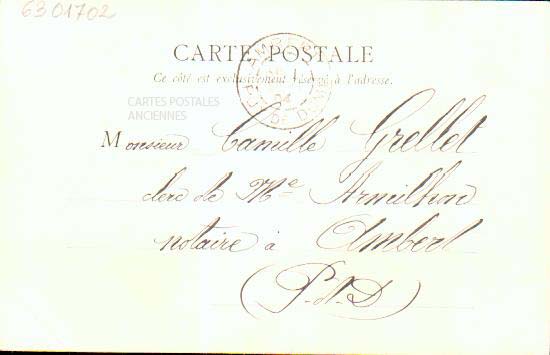 6301702
CARTE POSTALE
Ce côté est exclusivement réservé à l'adresse.
AMBERT
04
PUY-DE-DOME
CARTES POSTALES
ANCIENNES
Monsieur Camille Grellet
clerc de Me Armilhon
notaire à Ambert
(P-d-D)